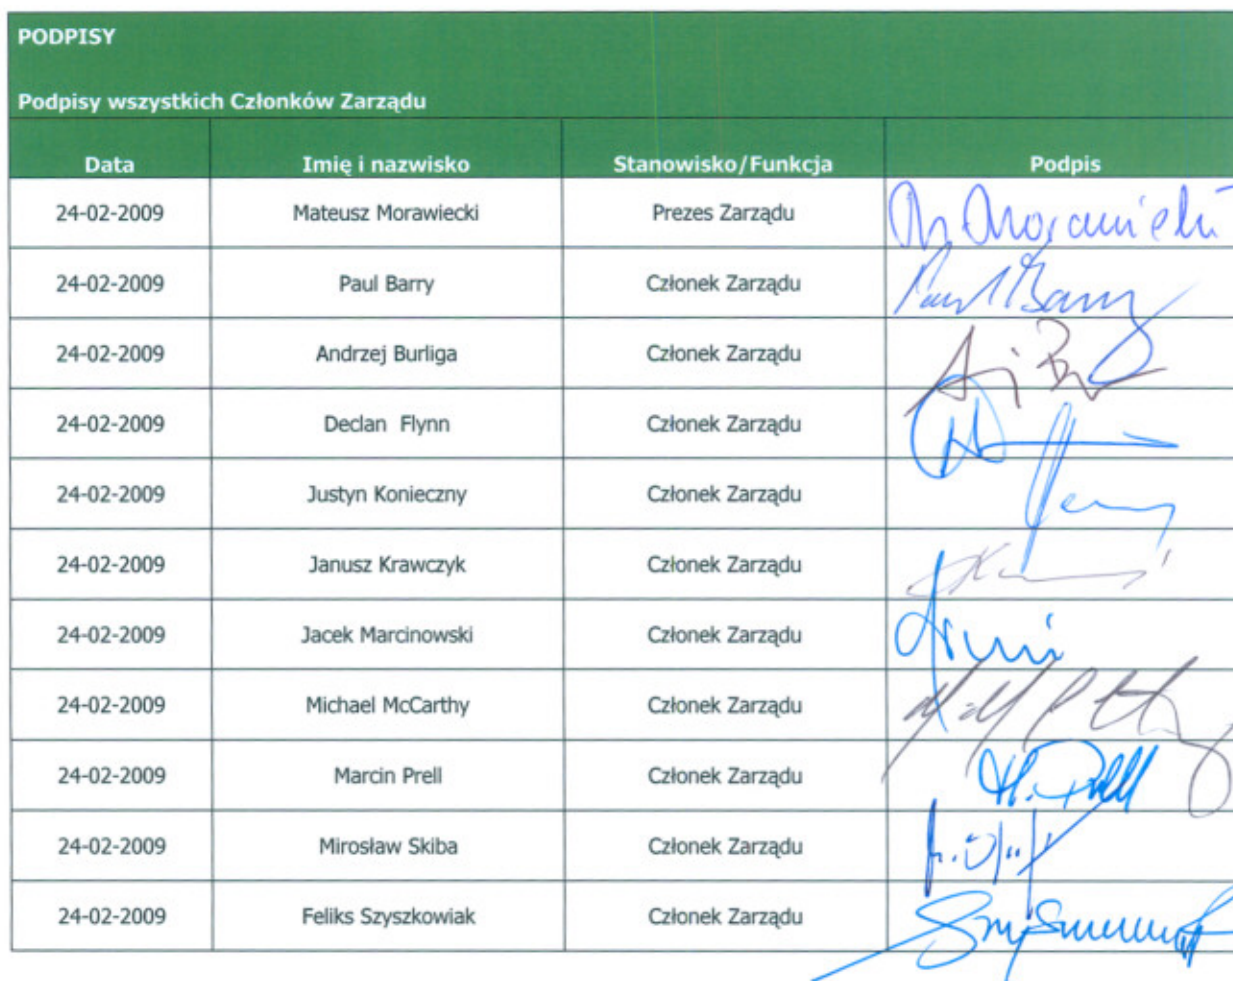 PODPISY
Podpisy wszystkich Członków Zarządu
Data Imię i nazwisko Stanowisko/Funkcja Podpis
24-02-2009 Mateusz Morawiecki Prezes Zarządu
24-02-2009 Paul Barry Członek Zarządu Paul Barry
24-02-2009 Andrzej Burliga Członek Zarządu
24-02-2009 Declan Flynn Członek Zarządu
24-02-2009 Justyn Konieczny Członek Zarządu
24-02-2009 Janusz Krawczyk Członek Zarządu
24-02-2009 Jacek Marcinowski Członek Zarządu
24-02-2009 Michael McCarthy Członek Zarządu
24-02-2009 Marcin Prell Członek Zarządu M. Prell
24-02-2009 Mirosław Skiba Członek Zarządu
24-02-2009 Feliks Szyszkowiak Członek Zarządu